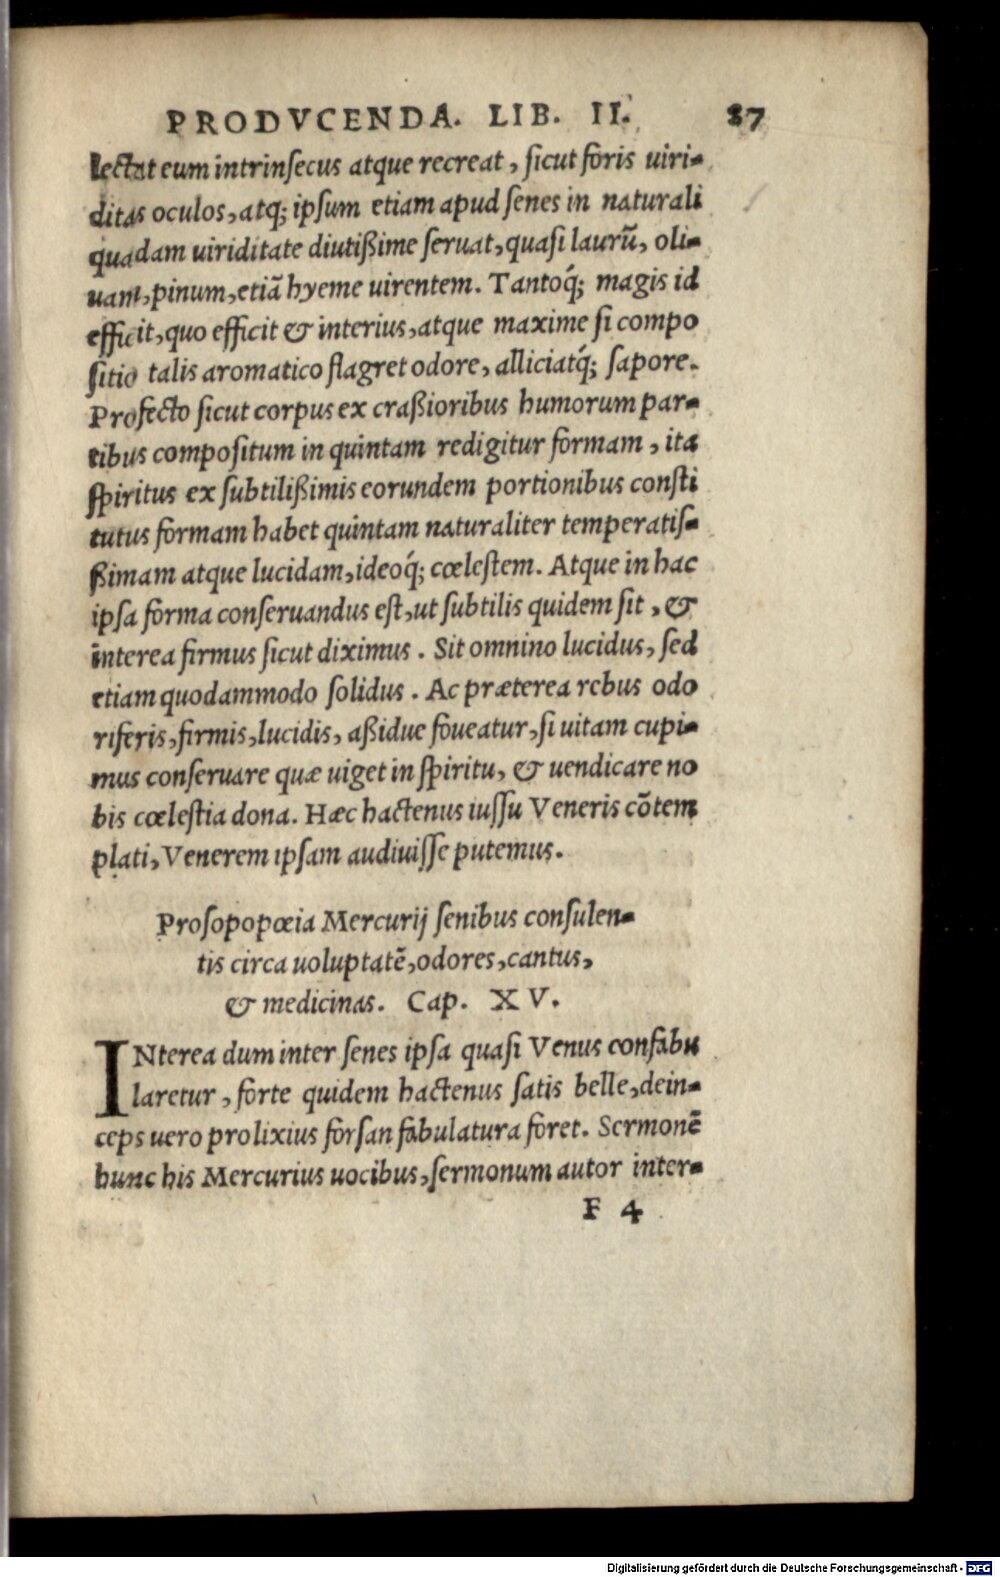 PRODVCENDA. LIB. II. 87
lectat eum intrinſecus atque recreat, ſicut foris uiri-
ditas oculos, atq; ipſum etiam apud ſenes in naturali
quadam uiriditate diutißime ſeruat, quaſi laurũ, oli-
uam, pinum, etiã hyeme uirentem. Tantoq́; magis id
efficit, quo efficit & interius, atque maxime ſi compo
ſitio talis aromatico flagret odore, alliciatq́; ſapore.
Profecto ſicut corpus ex craßioribus humorum par-
tibus compoſitum in quintam redigitur formam, ita
ſpiritus ex ſubtilißimis eorundem portionibus conſti
tutus formam habet quintam naturaliter temperatiſ-
ßimam atque lucidam, ideoq́; cœleſtem. Atque in hac
ipſa forma conſeruandus eſt, ut ſubtilis quidem ſit, &
interea firmus ſicut diximus. Sit omnino lucidus, ſed
etiam quodammodo ſolidus. Ac præterea rebus odo
riferis, firmis, lucidis, aßidue foueatur, ſi uitam cupi-
mus conſeruare quæ uiget in ſpiritu, & uendicare no
bis cœleſtia dona. Hæc hactenus iuſſu Veneris cõtem
plati, Venerem ipſam audiuiſſe putemus.
Proſopopœia Mercurij ſenibus conſulen-
tis circa uoluptatẽ, odores, cantus,
& medicinas. Cap. XV.
INterea dum inter ſenes ipſa quaſi Venus confabu
laretur, forte quidem hactenus ſatis belle, dein-
ceps uero prolixius forſan fabulatura foret. Sermonẽ
hunc his Mercurius uocibus, ſermonum autor inter-
F 4
Digitalisierung gefördert durch die Deutsche Forschungsgemeinschaft - DFG